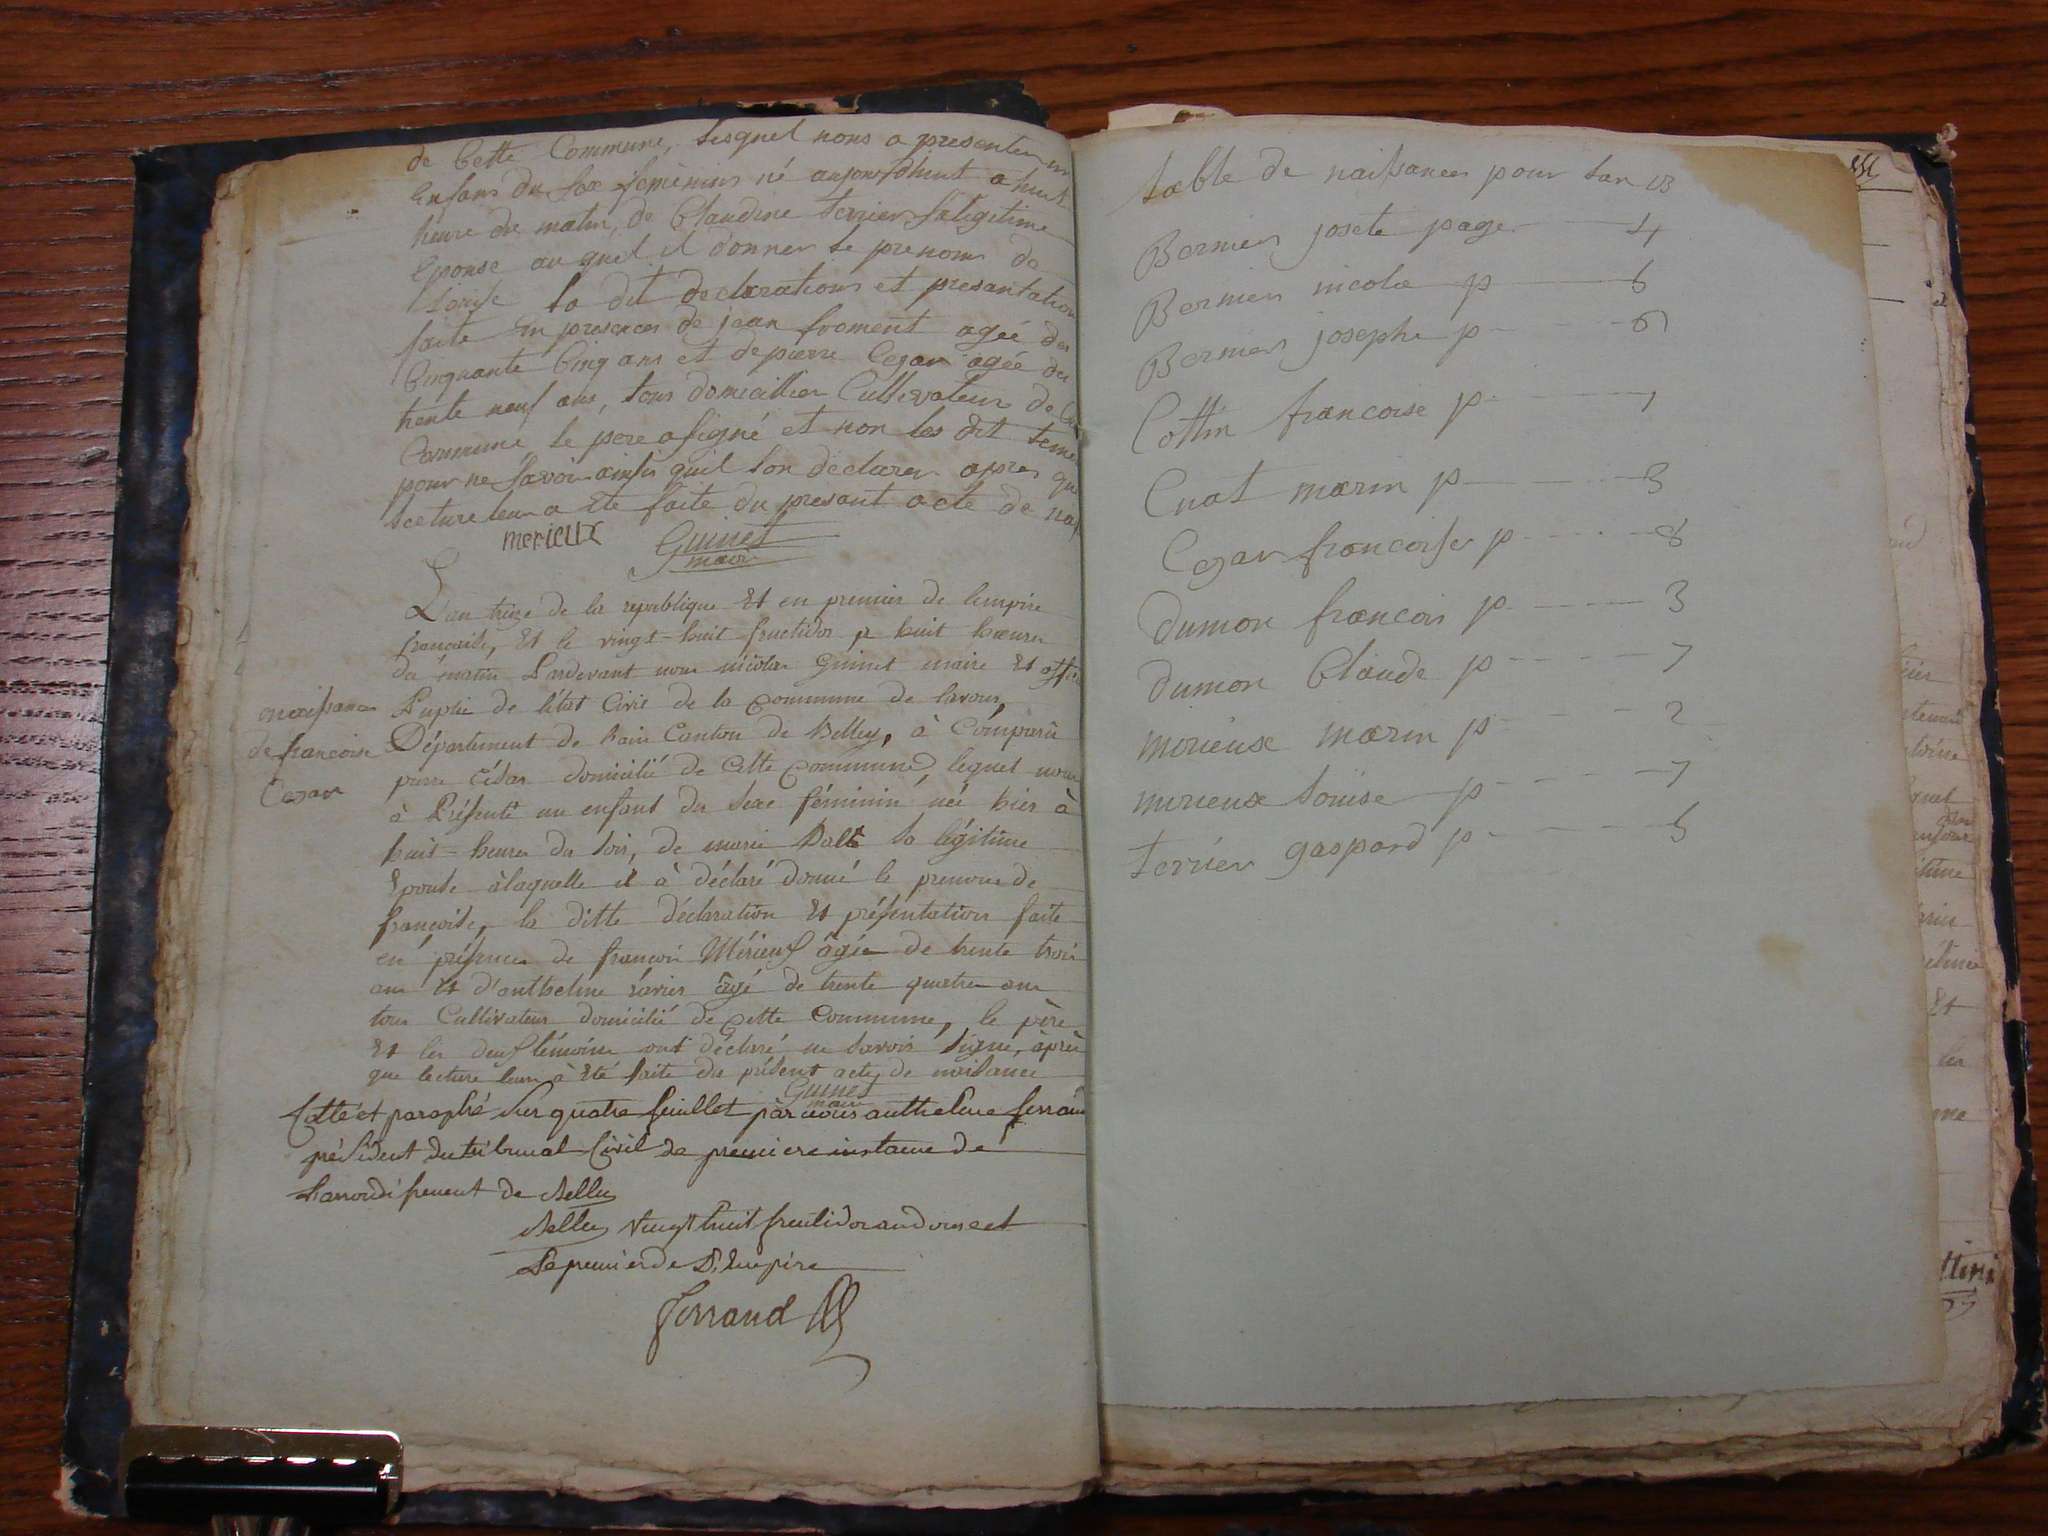 de Cette Commune, lesquel nous a presenter un
Enfans du sex femenins né aujourdhuit a huit
heure du matin, de Claudine terrier sa legitime
Epouse au quel il donner le prenom de
Louise la dit declarations et presantation
faite En presences de jean froment agée de
Cinquante Cinq ans et de pierre Cezar agée de
trente neuf ans, tous domicillier Cultivateur de
Commune, le pere a signé et non les dit temoi
pour ne savoir ainsin quil lon declarer apres que
lecture leur a Ete faite du presant acte de nais
merieux Guinet
maire
L'an treize de la republique Et en premier de lempire
francaise, Et le vingt-huit fructidor a huit heures
du matin Pardevant nous nicolas Guinet maire Et offic
Puplic de létat Civil de la Commune de lavour,
Département de lain Canton de Belley, à Comparu
pierre César domicilié de Cette Commune, lequel nous
à Présenté un enfant du sexe féminin née hier à
huit heures du soir, de marie Balt sa légitime
Epouse àlaquelle il à déclaré donné le prenom de
francoise, la ditte déclaration Et présentation faite
en présence de francois Mérieux âgée de trente trois
ans Et d'anthelme âgé de trente quatre ans
tous Cultivateur domicilié de Cette Commune, le père
Et les deux témoins ont déclaré ne savoir signé, après
que lecture leur à Eté faite du présent acte de naisance
Guinet
maire
naissance
de francoise
Cezar
Cotté et paraphé sur quatre feuillet par nous anthelme ferrand
président du tribunal Civil de premiere instance de
L'arrondissement de Belley
Belley vingt huit fructidor an douze et
Le premier de L'Empire
Ferrand
table de naissances pour lan 13
Bernier josete page 4
Bernier nicola p 6
Bernier josephe p 6
Cottin francoise p 1
Cuat marin p 5
Cezar francoise p 8
dumon francois p 3
dumon Claude p 7
merieux marin p 2
merieux Louise p 7
terrier gaspard p 5